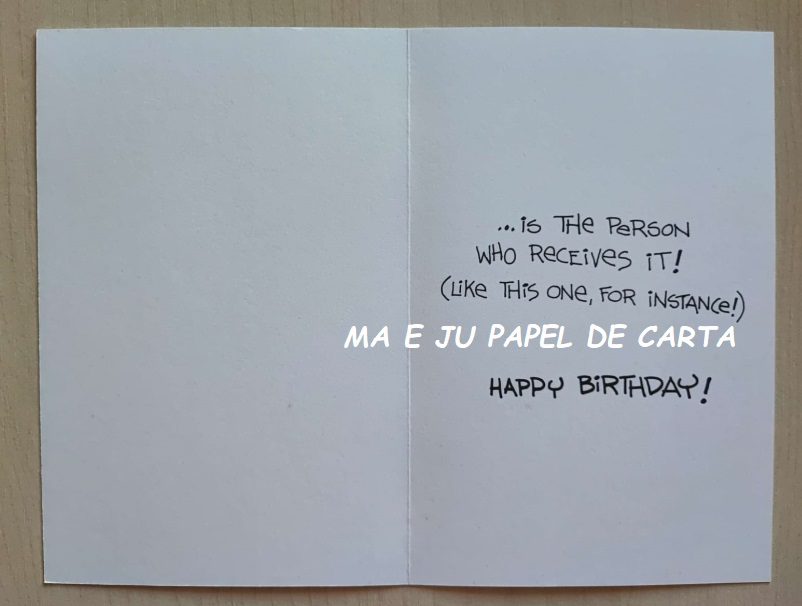 ...is THE PERSON
WHO RECEIVES iT!
(LIKE THIS ONE, FOR iNSTANCE!)
MA E JU PAPEL DE CARTA
HAPPY BiRTHDAY!